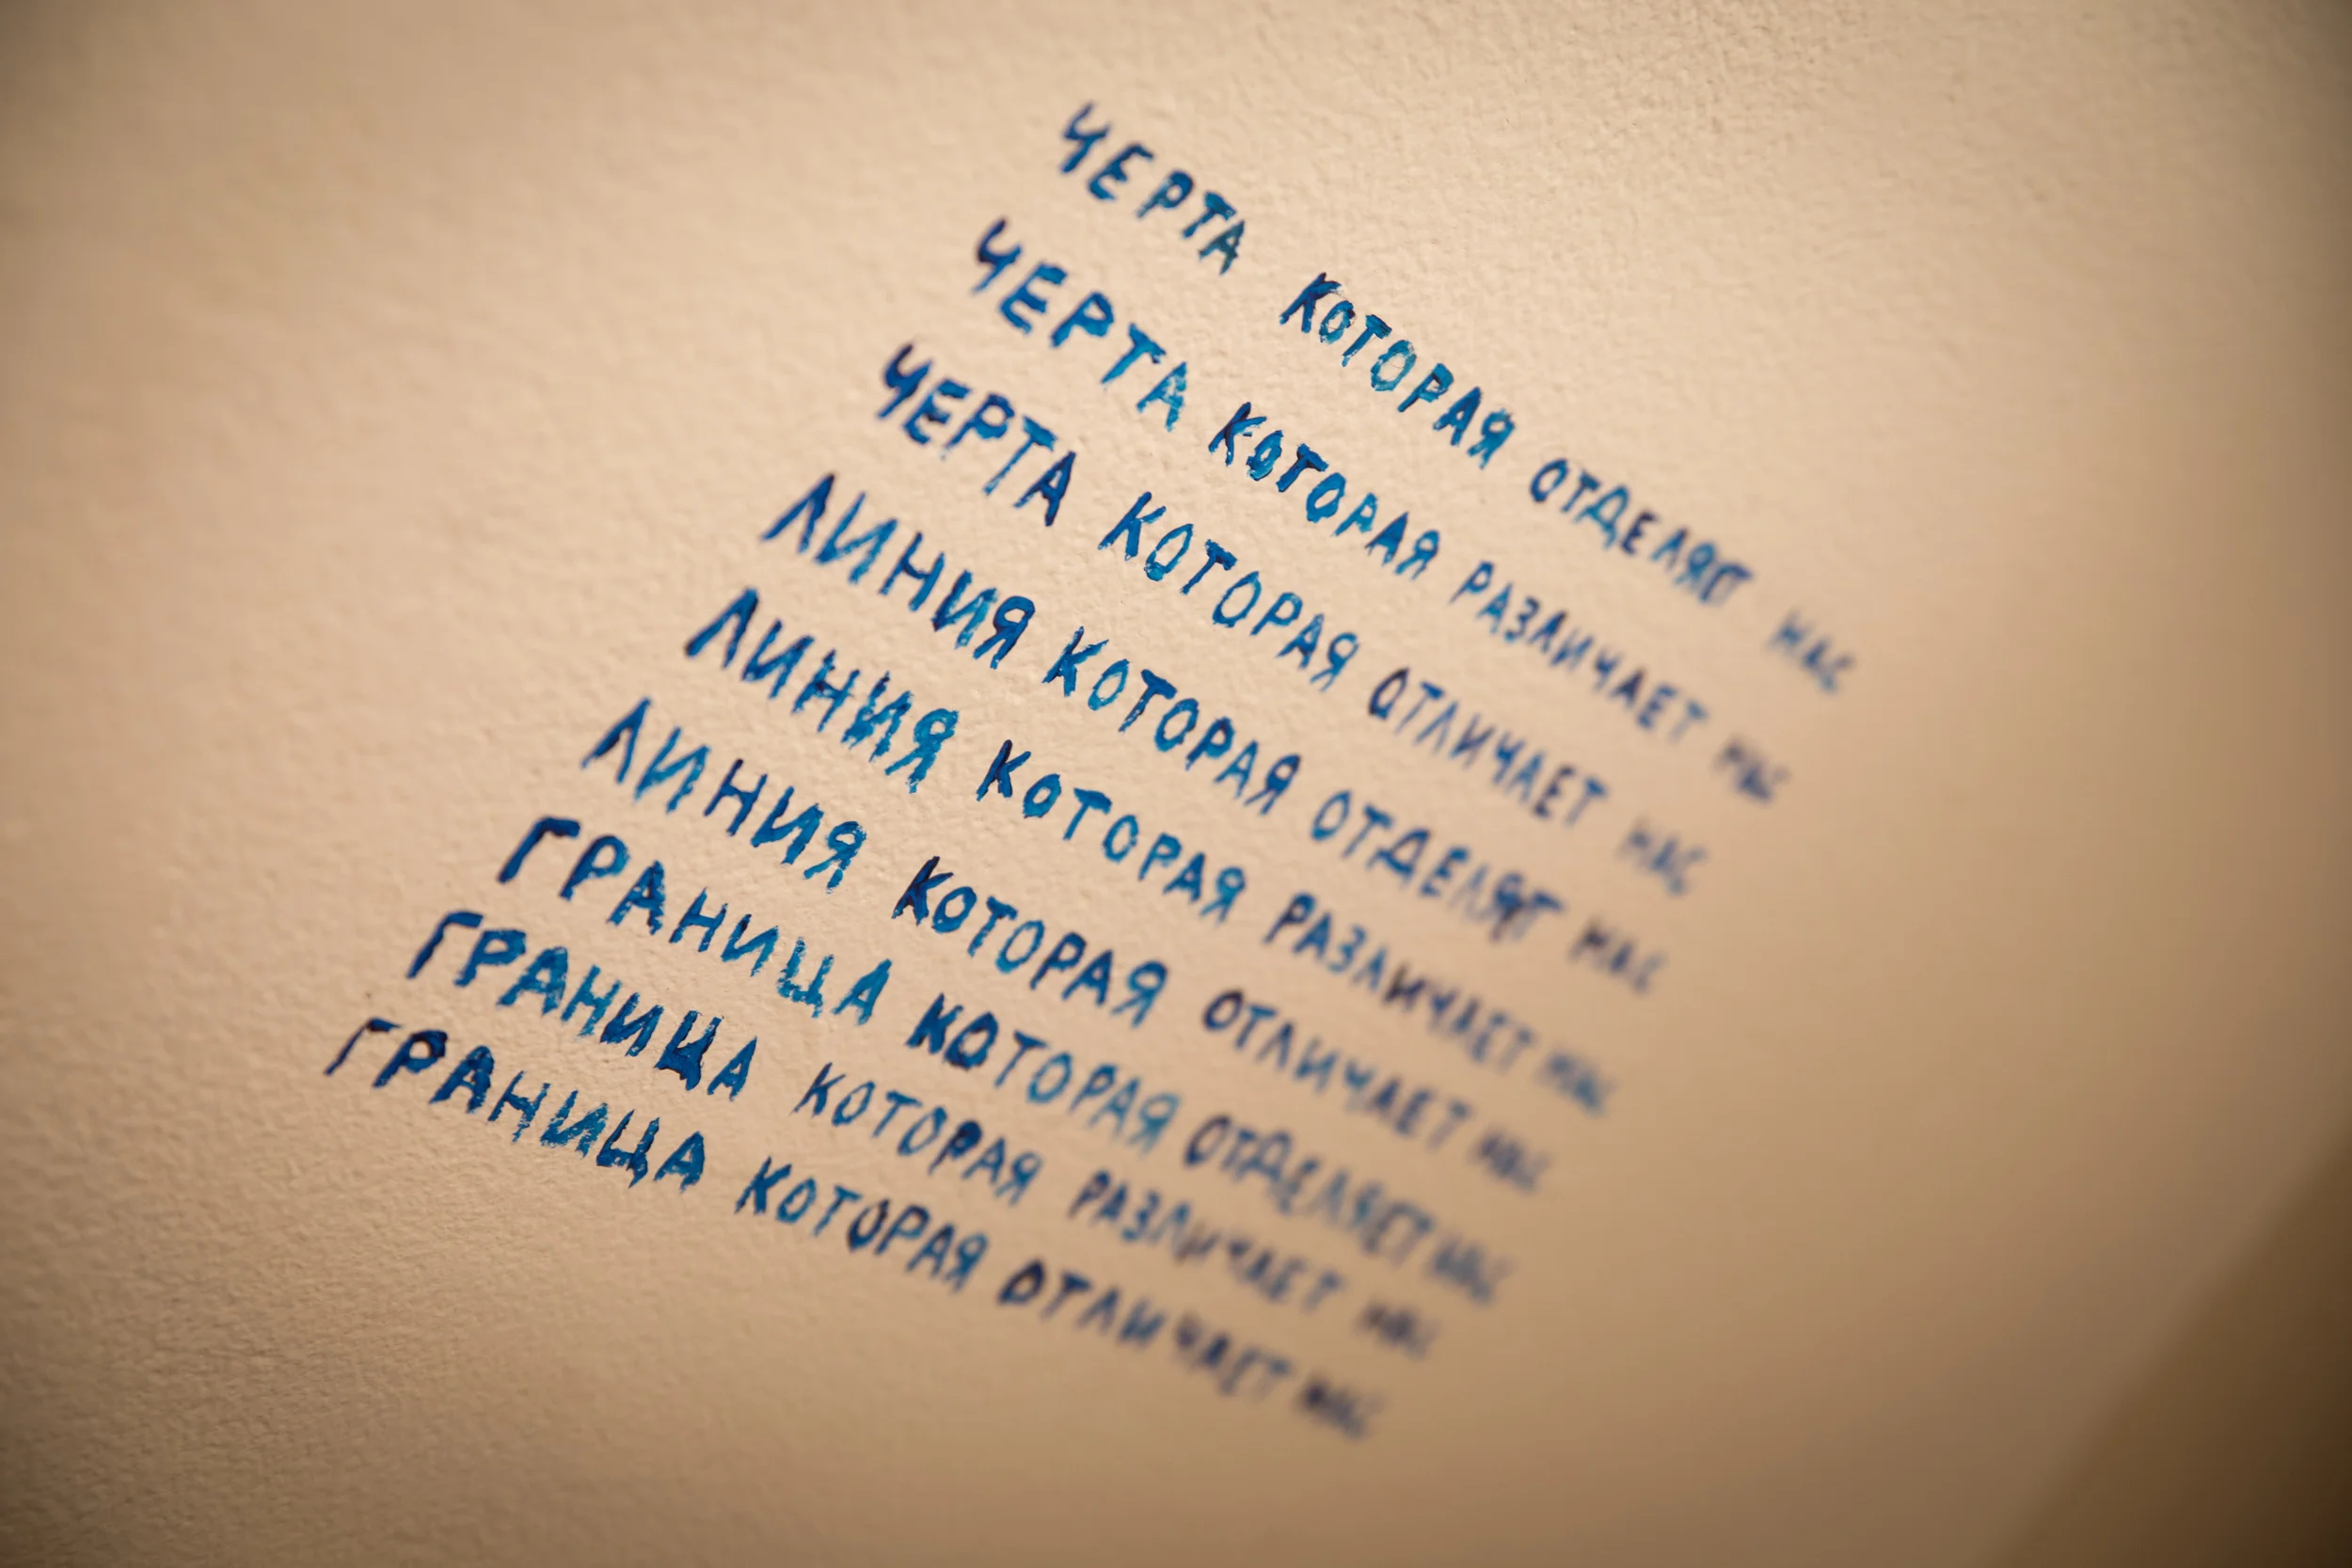 ЧЕРТА КОТОРАЯ ОТДЕЛЯЕТ НАС
ЧЕРТА КОТОРАЯ РАЗЛИЧАЕТ НАС
ЧЕРТА КОТОРАЯ ОТЛИЧАЕТ НАС
ЛИНИЯ КОТОРАЯ ОТДЕЛЯЕТ НАС
ЛИНИЯ КОТОРАЯ РАЗЛИЧАЕТ НАС
ЛИНИЯ КОТОРАЯ ОТЛИЧАЕТ НАС
ГРАНИЦА КОТОРАЯ ОТДЕЛЯЕТ НАС
ГРАНИЦА КОТОРАЯ РАЗЛИЧАЕТ НАС
ГРАНИЦА КОТОРАЯ ОТЛИЧАЕТ НАС